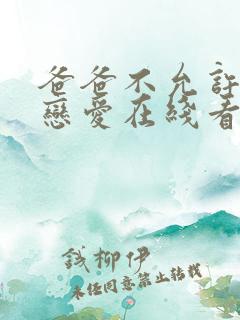 爸爸不允許
戀愛在綫看
錢柳伊
未经同意禁止转载